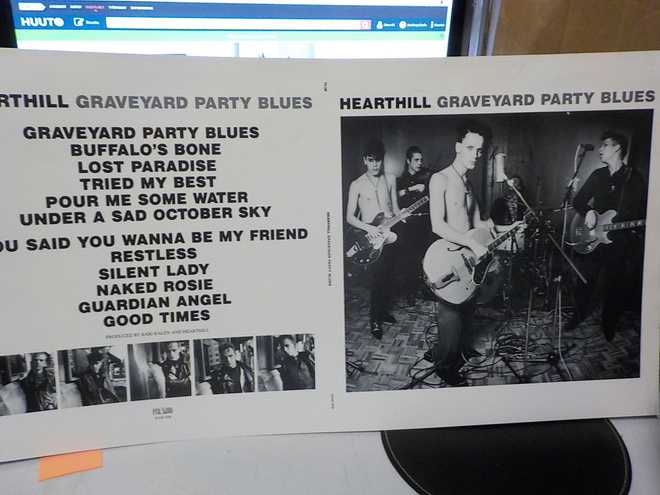 HUUTO
RTHILL GRAVEYARD PARTY BLUES
GRAVEYARD PARTY BLUES
BUFFALO'S BONE
LOST PARADISE
TRIED MY BEST
POUR ME SOME WATER
UNDER A SAD OCTOBER SKY
OU SAID YOU WANNA BE MY FRIEND
RESTLESS
SILENT LADY
NAKED ROSIE
GUARDIAN ANGEL
GOOD TIMES
PRODUCED BY KARI KALÉN AND HEARTHILL
HEARTHILL GRAVEYARD PARTY BLUES
HEARTHILL GRAVEYARD PARTY BLUES